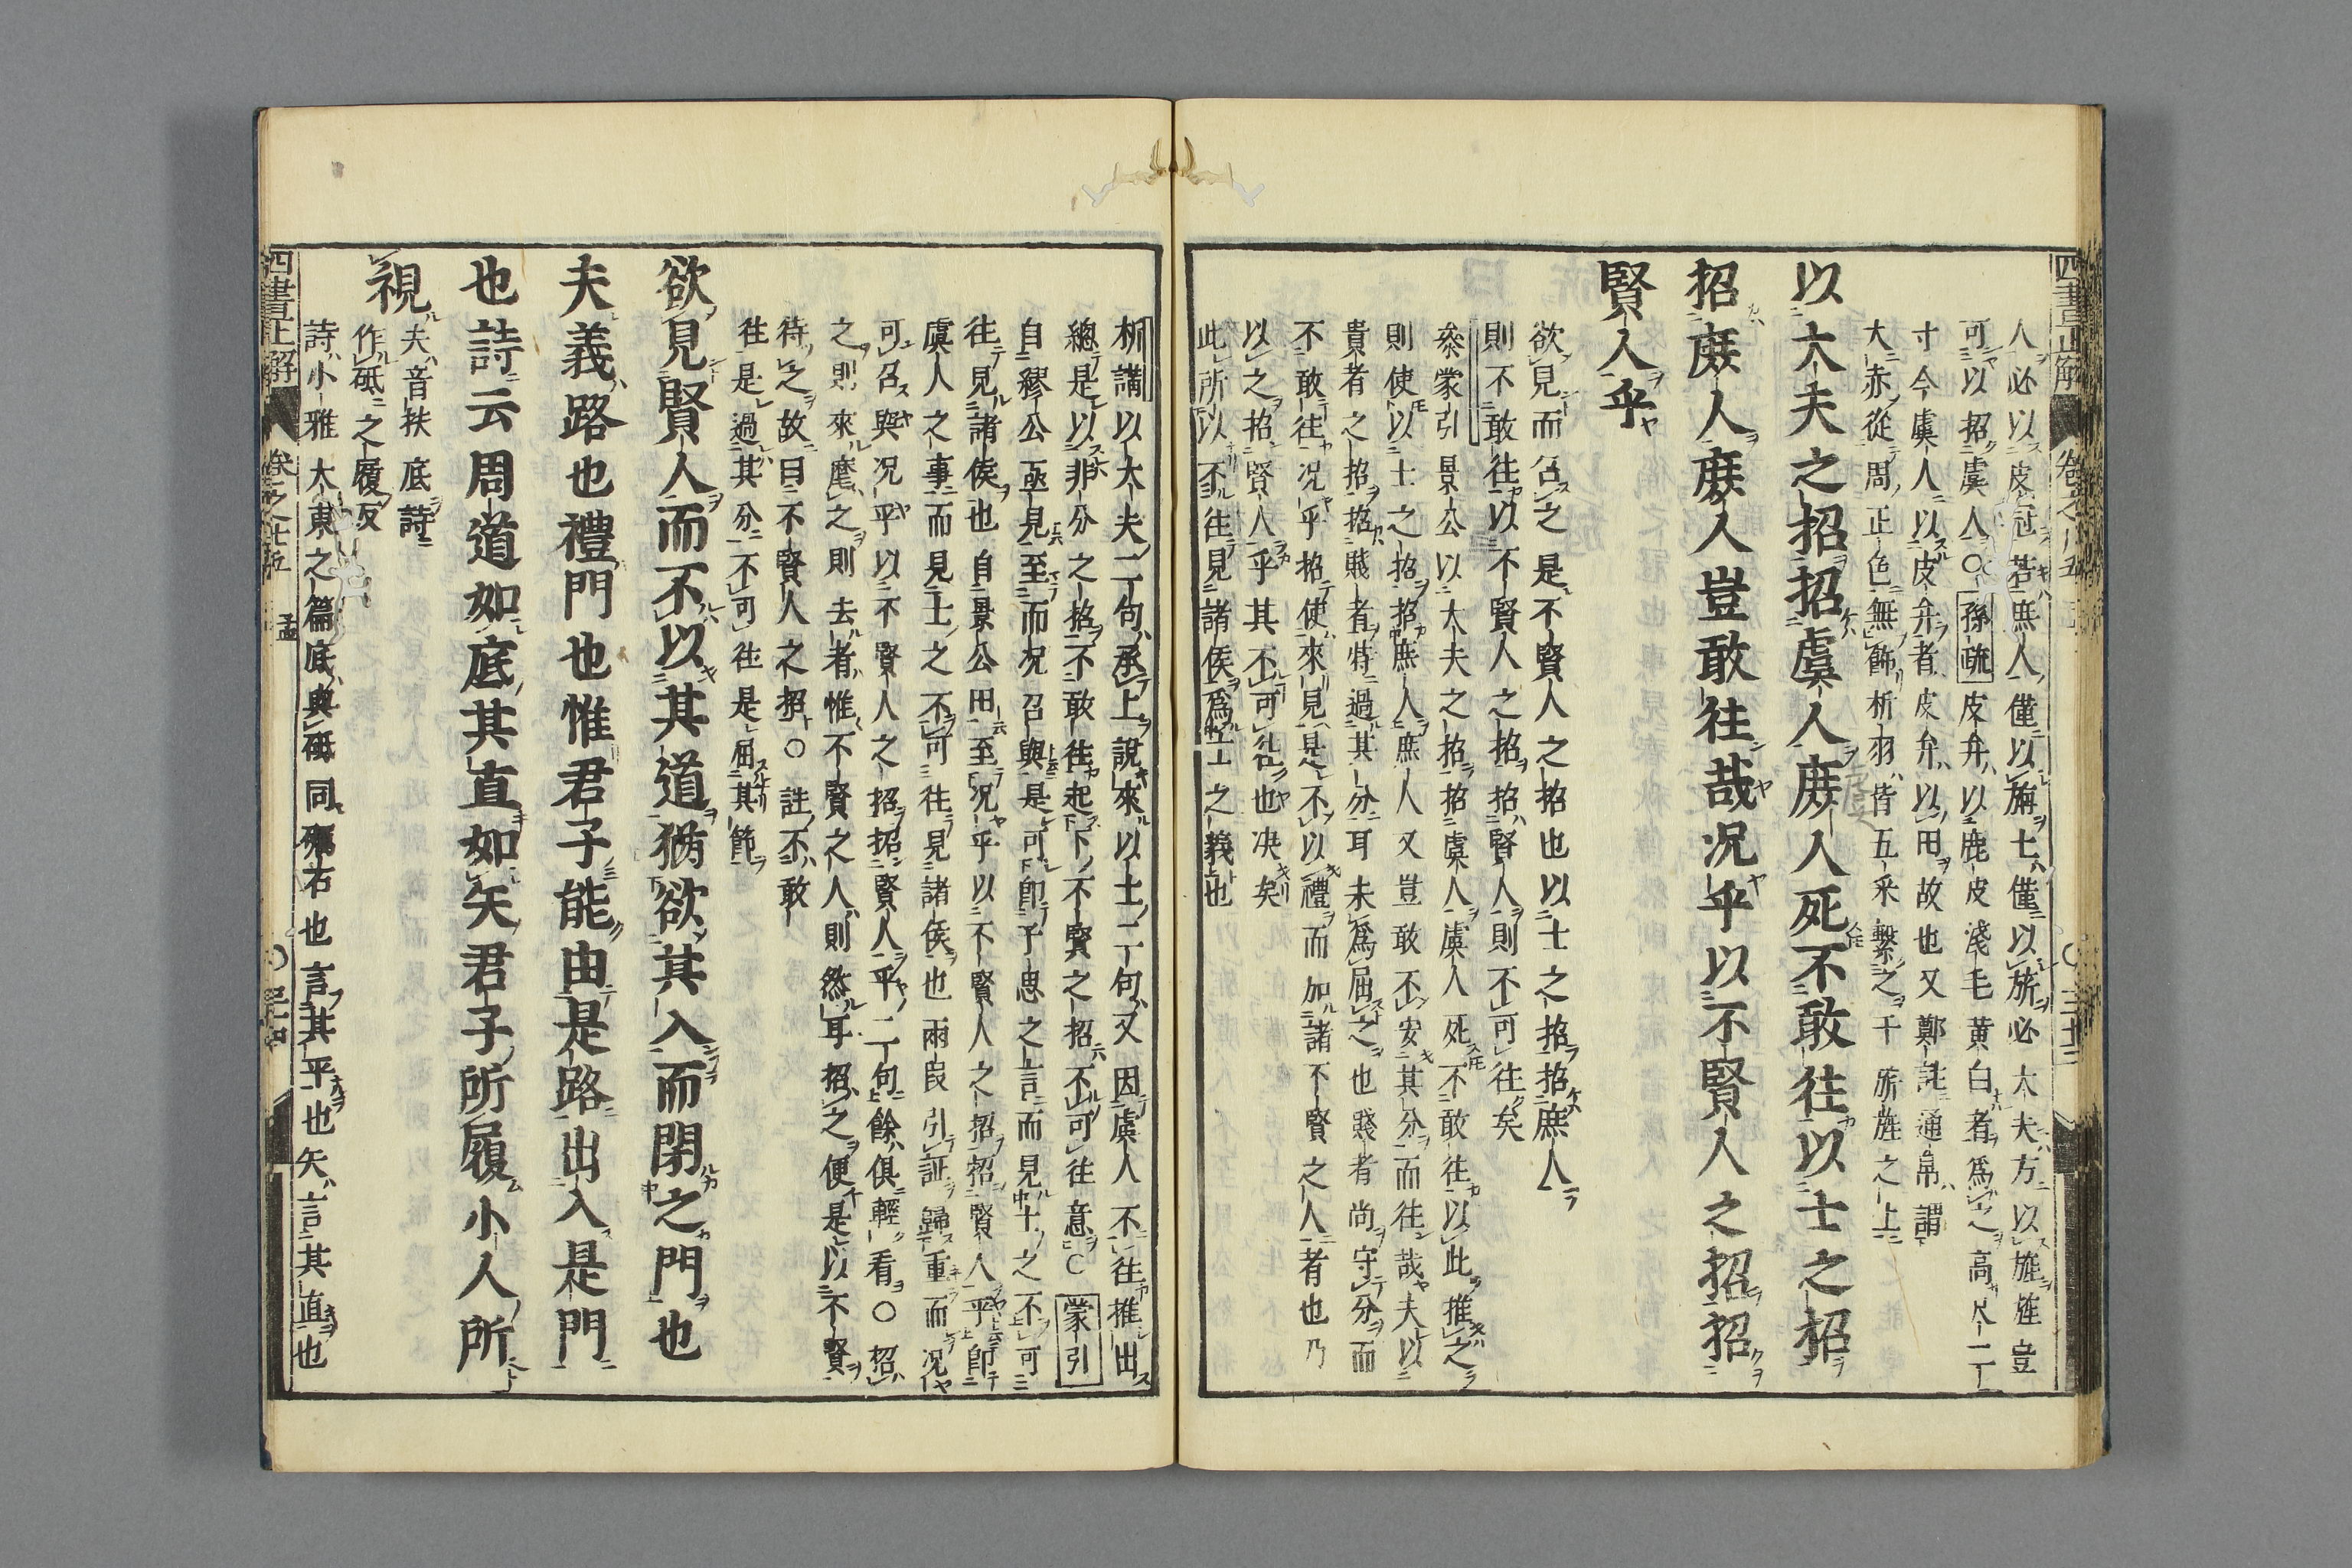 四書正解 卷之 五 三十三
人必以皮冠若庶人僅以旃士僅以旂必大夫方以旌旌豈
可以招虞人〇孫疏皮弁以鹿皮淺毛黄白者爲之高尺二
寸今虞人以皮弁者皮弁以田故也又鄭註通帛謂
大赤從周正色無飾析羽皆五采繫之于旂旌之上
以大夫之招招虞人虞人死不敢往以士之招
招庶人庶人豈敢往哉况乎以不賢人之招招
賢人乎
欲見而召之是不賢人之招也以士之招招庶人
則不敢往以不賢人之招招賢人則不可往矣
㕘蒙引景公以大夫之招招虞人虞人死不敢往以此推之
則使以士之招招庶人庶人又豈敢不安其分而往哉夫以
貴者之招招賤者特過其分耳未爲屈之也賤者尚守分而
不敢往况乎招使來見是不以禮而加諸不賢之人者也乃
以之招賢人乎其不可徃也决矣
此所以不往見諸侯爲 士之義也
析講以大夫一句承上說來以士一句又因虞人不往推出
總是以非分之招不敢往起下不賢之招不可往意〇蒙引
自繆公亟見至而况召與是可即子思之言而見士之不可
往見諸侯也自景公田至况乎以不賢人之招招賢人乎即
虞人之事而見士之不可往見諸侯也兩段引証歸重而况
可召與况乎以不賢人之招招賢人乎二句餘俱輕看〇招
之則來麾之則去者惟不賢之人則然耳招之便是以不賢
待之故曰不賢人之招〇註不敢
往是過其分不可往是屈其節
欲見賢人而不以其道猶欲其入而閉之門也
夫義路也禮門也惟君子能由是路出入是門
也詩云周道如底其直如矢君子所履小人所
視夫音扶 底詩
作砥之履反
詩小雅大東之篇底與砥同礪石也言其平也矢言其直也
四書正解 卷之 五 孟